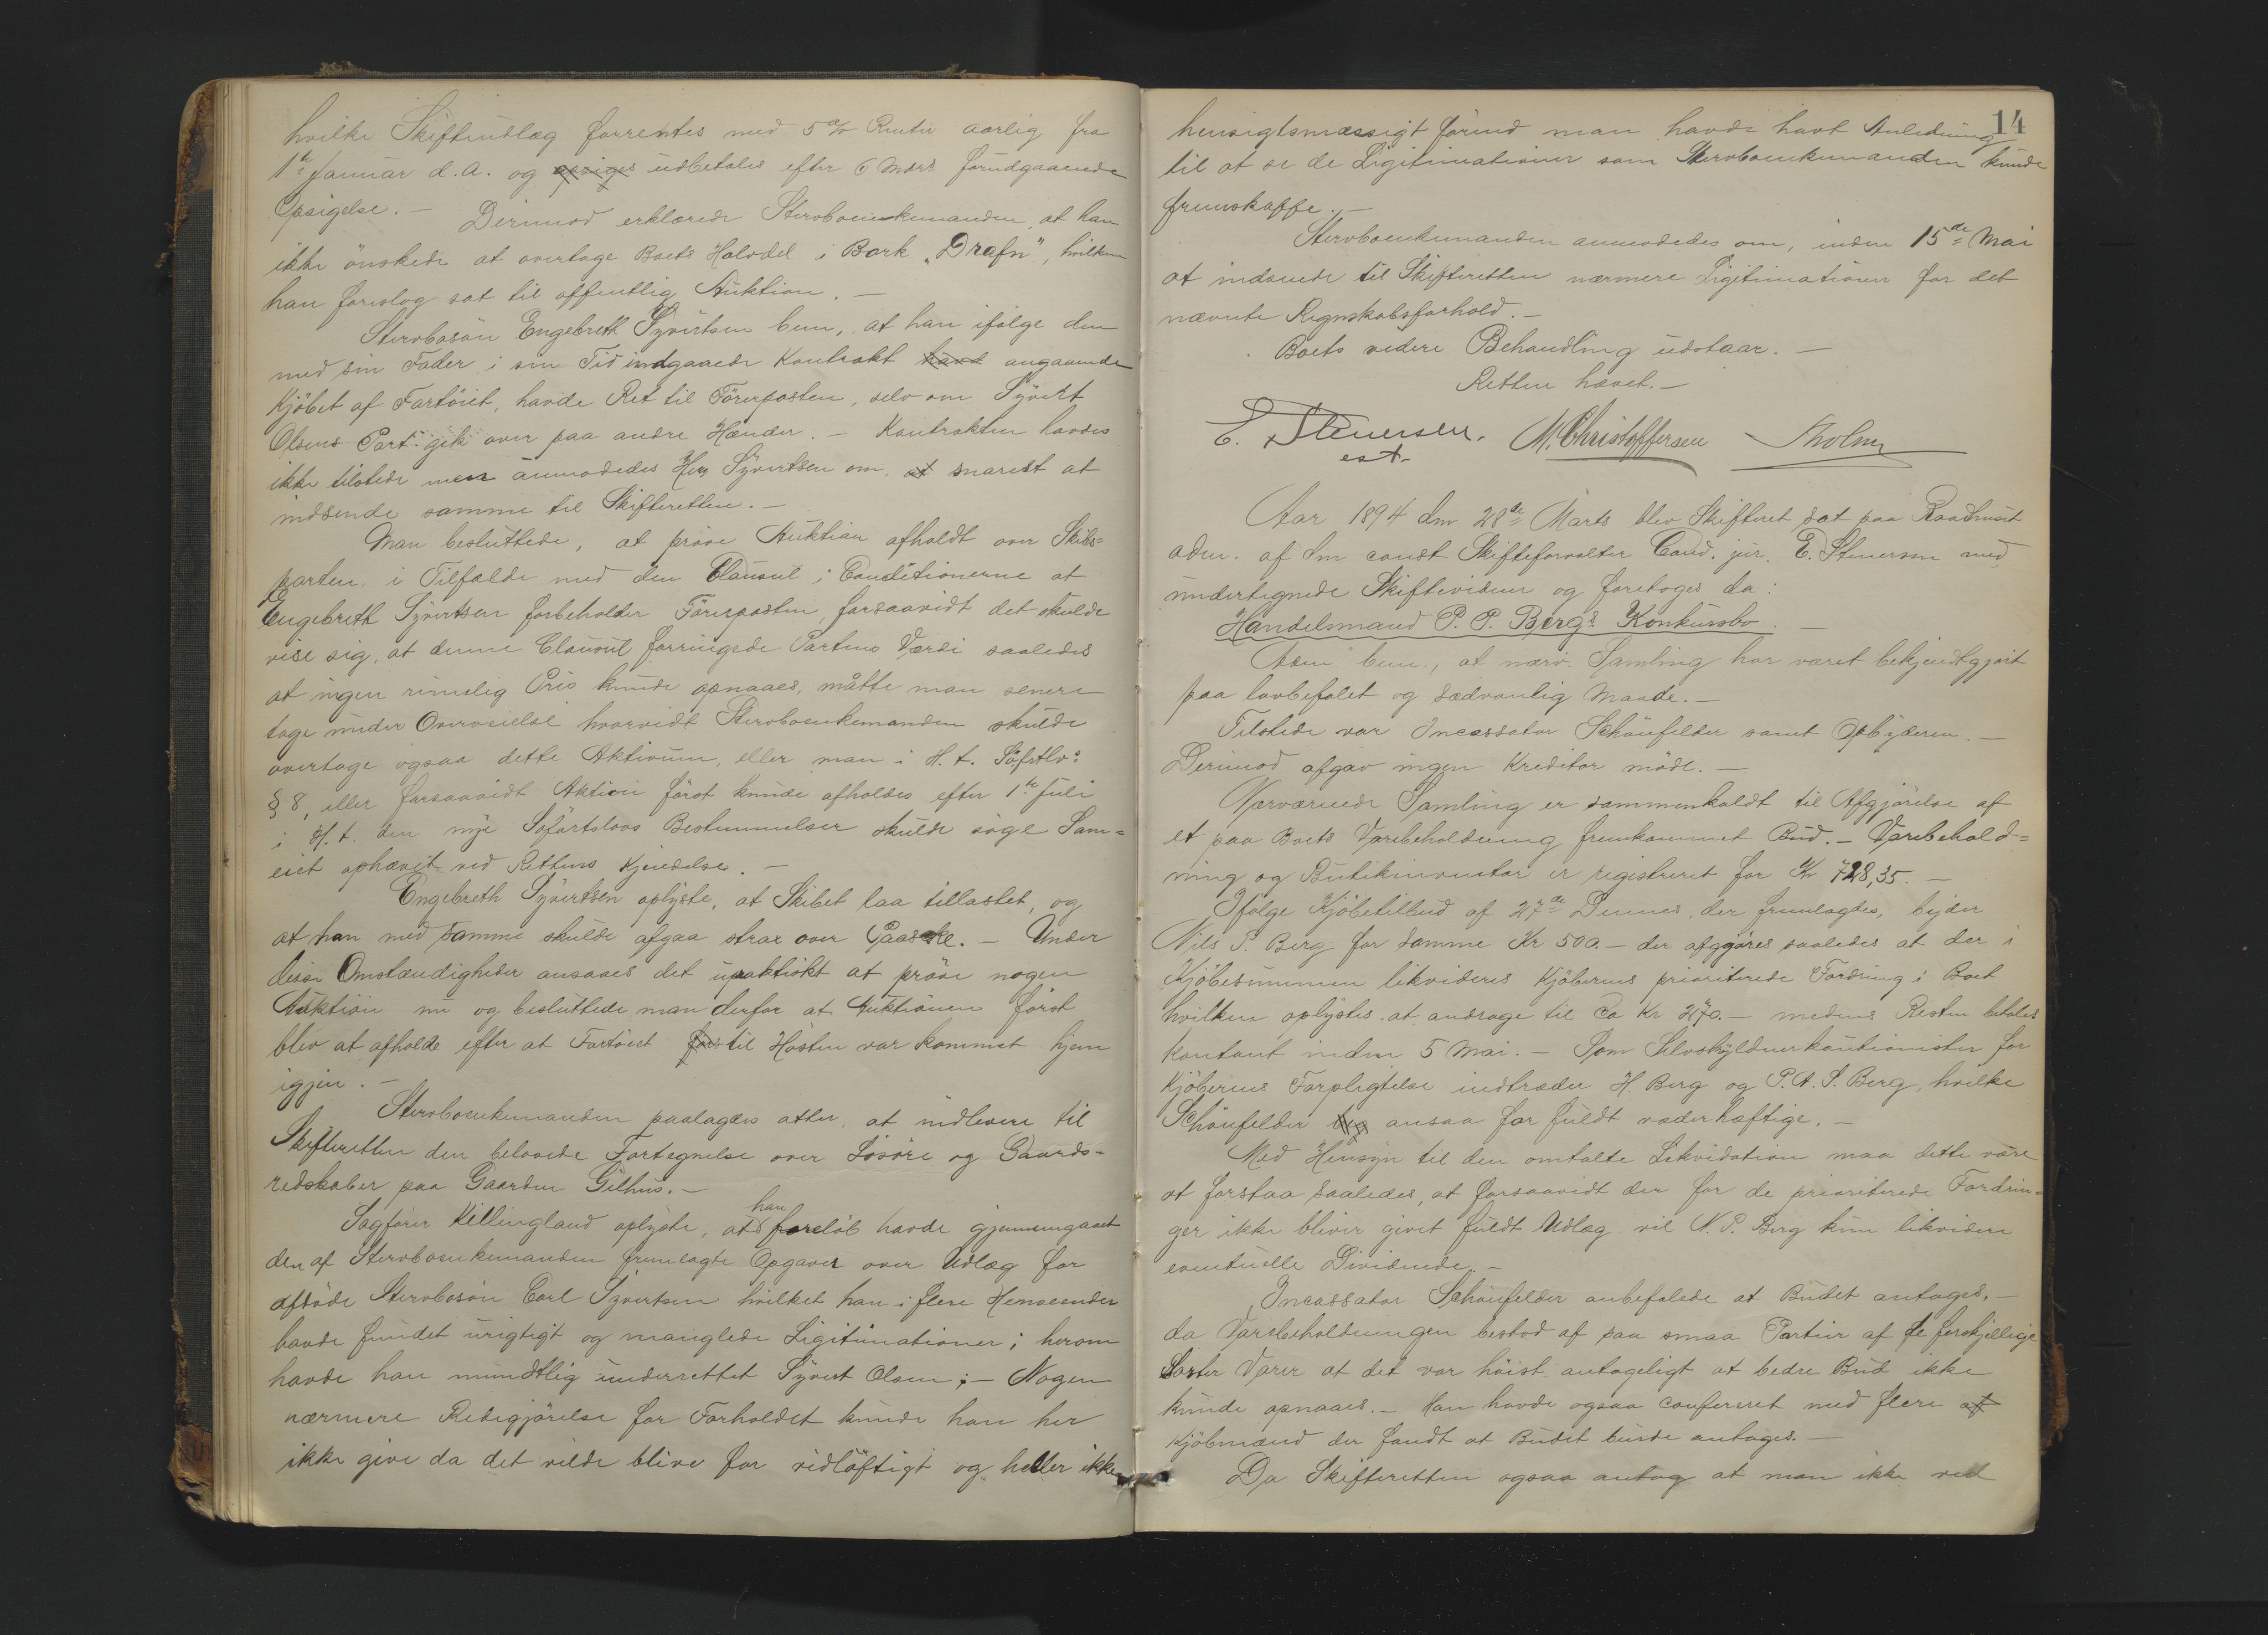 hvilke Skifteudlæg forrentes med 5 % Renter aarlig fra
1ste Januar d.A. og opsiges udbetales efter 6 Mdrs forudgaaende
Opsigelse. — Derimod erklærede Stervboenkemanden, at han
ikke ønskede at overtage Boets Halvdel i Bark „Drafn", hvilken
han foreslog sat til offentlig Auktion. —
Stervbosøn Engebreth Syvertsen bem., at han ifølge den
med sin Fader i sin Tid indgaaede Kontrakt havd angaaende
Kjøbet af Fartøiet, havde Ret til Førerposten, selv om Syvert
Olsens Part gik over paa andre Hænder. — Kontrakten havdes
ikke tilstede men anmodedes Hr. Syvertsen om, at snarest at
indsende samme til Skifteretten. —
Man besluttede, at prøve Auktion afholdt over Skibs=
parten i Tilfælde med den Clausul i Conditionerne at
Engebreth Syvertsen forbeholder Førerposten, forsaavidt det skulde
vise sig, at denne Clausul forringede Partens Værdi saaledes
at ingen rimelig Pris kunde opnaaes, måtte man senere
tage under Overveielse hvorvidt Stervboenkemanden skulde
overtage ogsaa dette Aktivum, eller man i H. t. Søfrtlvs
§ 8, eller forsaavidt Aktion først kunde afholdes efter 1ste Juli
i H. t. den nye Søfartslovs Bestemmelser skulde søge Sam=
eiet ophævet ved Rettens Kjendelse. —
Engebreth Syvertsen oplyste, at Skibet laa tillastet, og
at han med samme skulde afgaa strax over Paaske. — Under
disse Omstændigheder ansaaes det upraktiskt at prøve nogen
Auktion nu og besluttede man derfor at Auktionen først
blev at afholde efter at Fartøiet før til Høsten var kommet hjem
igjen. —
Stervboenkemanden paalagdes atter, at indlevere til
Skifteretten den belovede Fortegnelse over Løsøre og Gaards-
redskaber paa Gaarden Gilhus. —
Sagfører Killingland oplyste, at han foreløb havde gjennemgaaet
den af Stervboenkemanden fremlagte Opgaver over Udlæg for
afdøde Stervbosøn Carl Syvertsen hvilket han i flere Henseender
havde fundet urigtigt og manglede Ligitimationer; herom
havde han mundtlig underrettet Syvert Olsen; — Nogen
nærmere Redegjørelse for Forholdet kunde han her
ikke give da det vilde blive for vidløftigt og heller ikke
14
hensigtsmæssigt førend man havde havt Anledning
til at se de Ligitimationer som Stervboenkemanden kunde
fremskaffe. —
Stervboenkemanden anmodedes om, inden 15de Mai
at indsende til Skifteretten nærmere Ligitimationer for det
nævnte Regnskabsforhold. —
Boets videre Behandling udstaar. —
Retten hævet. —
E. Stenersen. M. Christoffersen Tholm
cst.
Aar 1894 den 28de Marts blev Skifteret sat paa Raadhuset
adm. af den const Skifteforvalter Cand. jur. E. Stenersen med
undertegnede Skiftevidner og foretoges da:
Handelsmand P. P. Bergs Konkursbo. —
Adm bem., at nærv. Samling har været bekjendtgjort
paa lovbefalet og sædvanlig Maade. —
Tilstede var Incassator Schönfelder samt Opbyderen. —
Derimod afgav ingen Kreditor møde. —
Nærværende Samling er sammenkaldt til Afgjørelse af
et paa Boets Varebeholdning fremkommet Bud. — Varebehold=
ning og Butikinventar er registreret for Kr 728,35. —
Ifølge Kjøbetilbud af 27de Dennes, der fremlagdes, byder
Nils P. Berg for samme Kr 500. — der afggjøres saaledes at der i
Kjøbesummen likvideres Kjøberens prioriterede Fordring i Boet
hvilken oplystes at andrage til Ca Kr 270. — medens Resten betales
kontant inden 5 Mai. — Som Selvskyldnerkautionister for
Kjøberens Forpligtelse indtræder H. Berg og P. A. S. Berg, hvilke
Schönfelder ansaa for fuldt vederhæftige. —
Med Hensyn til den omtalte Likvidation maa dette være
at forstaa saaledes, at forsaavidt der for de prioriterede Fordrin=
ger ikke bliver givet fuldt Udlæg vil N. P. Berg kun likvidere
eventuelle Dividende. —
Incassator Schönfelder anbefalede at Budet antages. —
da Varebeholdningen bestod af paa smaa Partier af de forskjellige
Sorter Varer at det var høist antageligt at bedre Bud ikke
kunde opnaaes. — Han havde ogsaa confereret med flere af
Kjøbmænd der fandt at Budet burde antages. —
Da Skifteretten ogsaa antog at man ikke ved